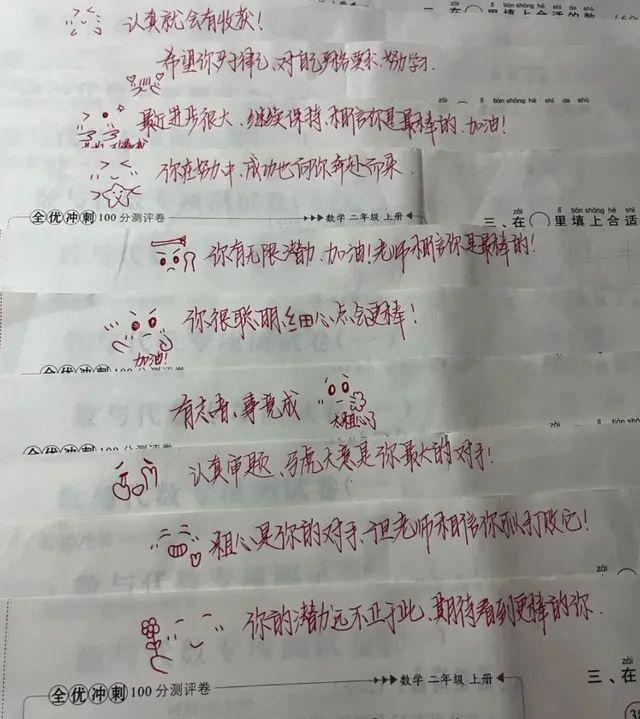 二、在○里填上合适的数
认真就会有收获！
希望你对自己严格要求、努力学习.
zài tián shàng hé shì de shù
最近进步很大、继续保持、相信你是最棒的、加油！
你在努力中、成功也向你奔赴而来.
全优冲刺100分测评卷
数学 二年级 上册
三、在○里填上合适
你有无限潜力、加油！老师相信你是最棒的！
你很聪明、细心点会更棒！
加油！
全优冲刺100分测评卷
有志者、事竟成
太粗心了
全优冲刺100分测评卷
认真审题、马虎大意是你最大的对手！
粗心是你的对手、但老师相信你可以打败它！
你的潜力远不止于此、期待看到更棒的你.
全优冲刺100分测评卷
数学 二年级 上册
zài
三、在